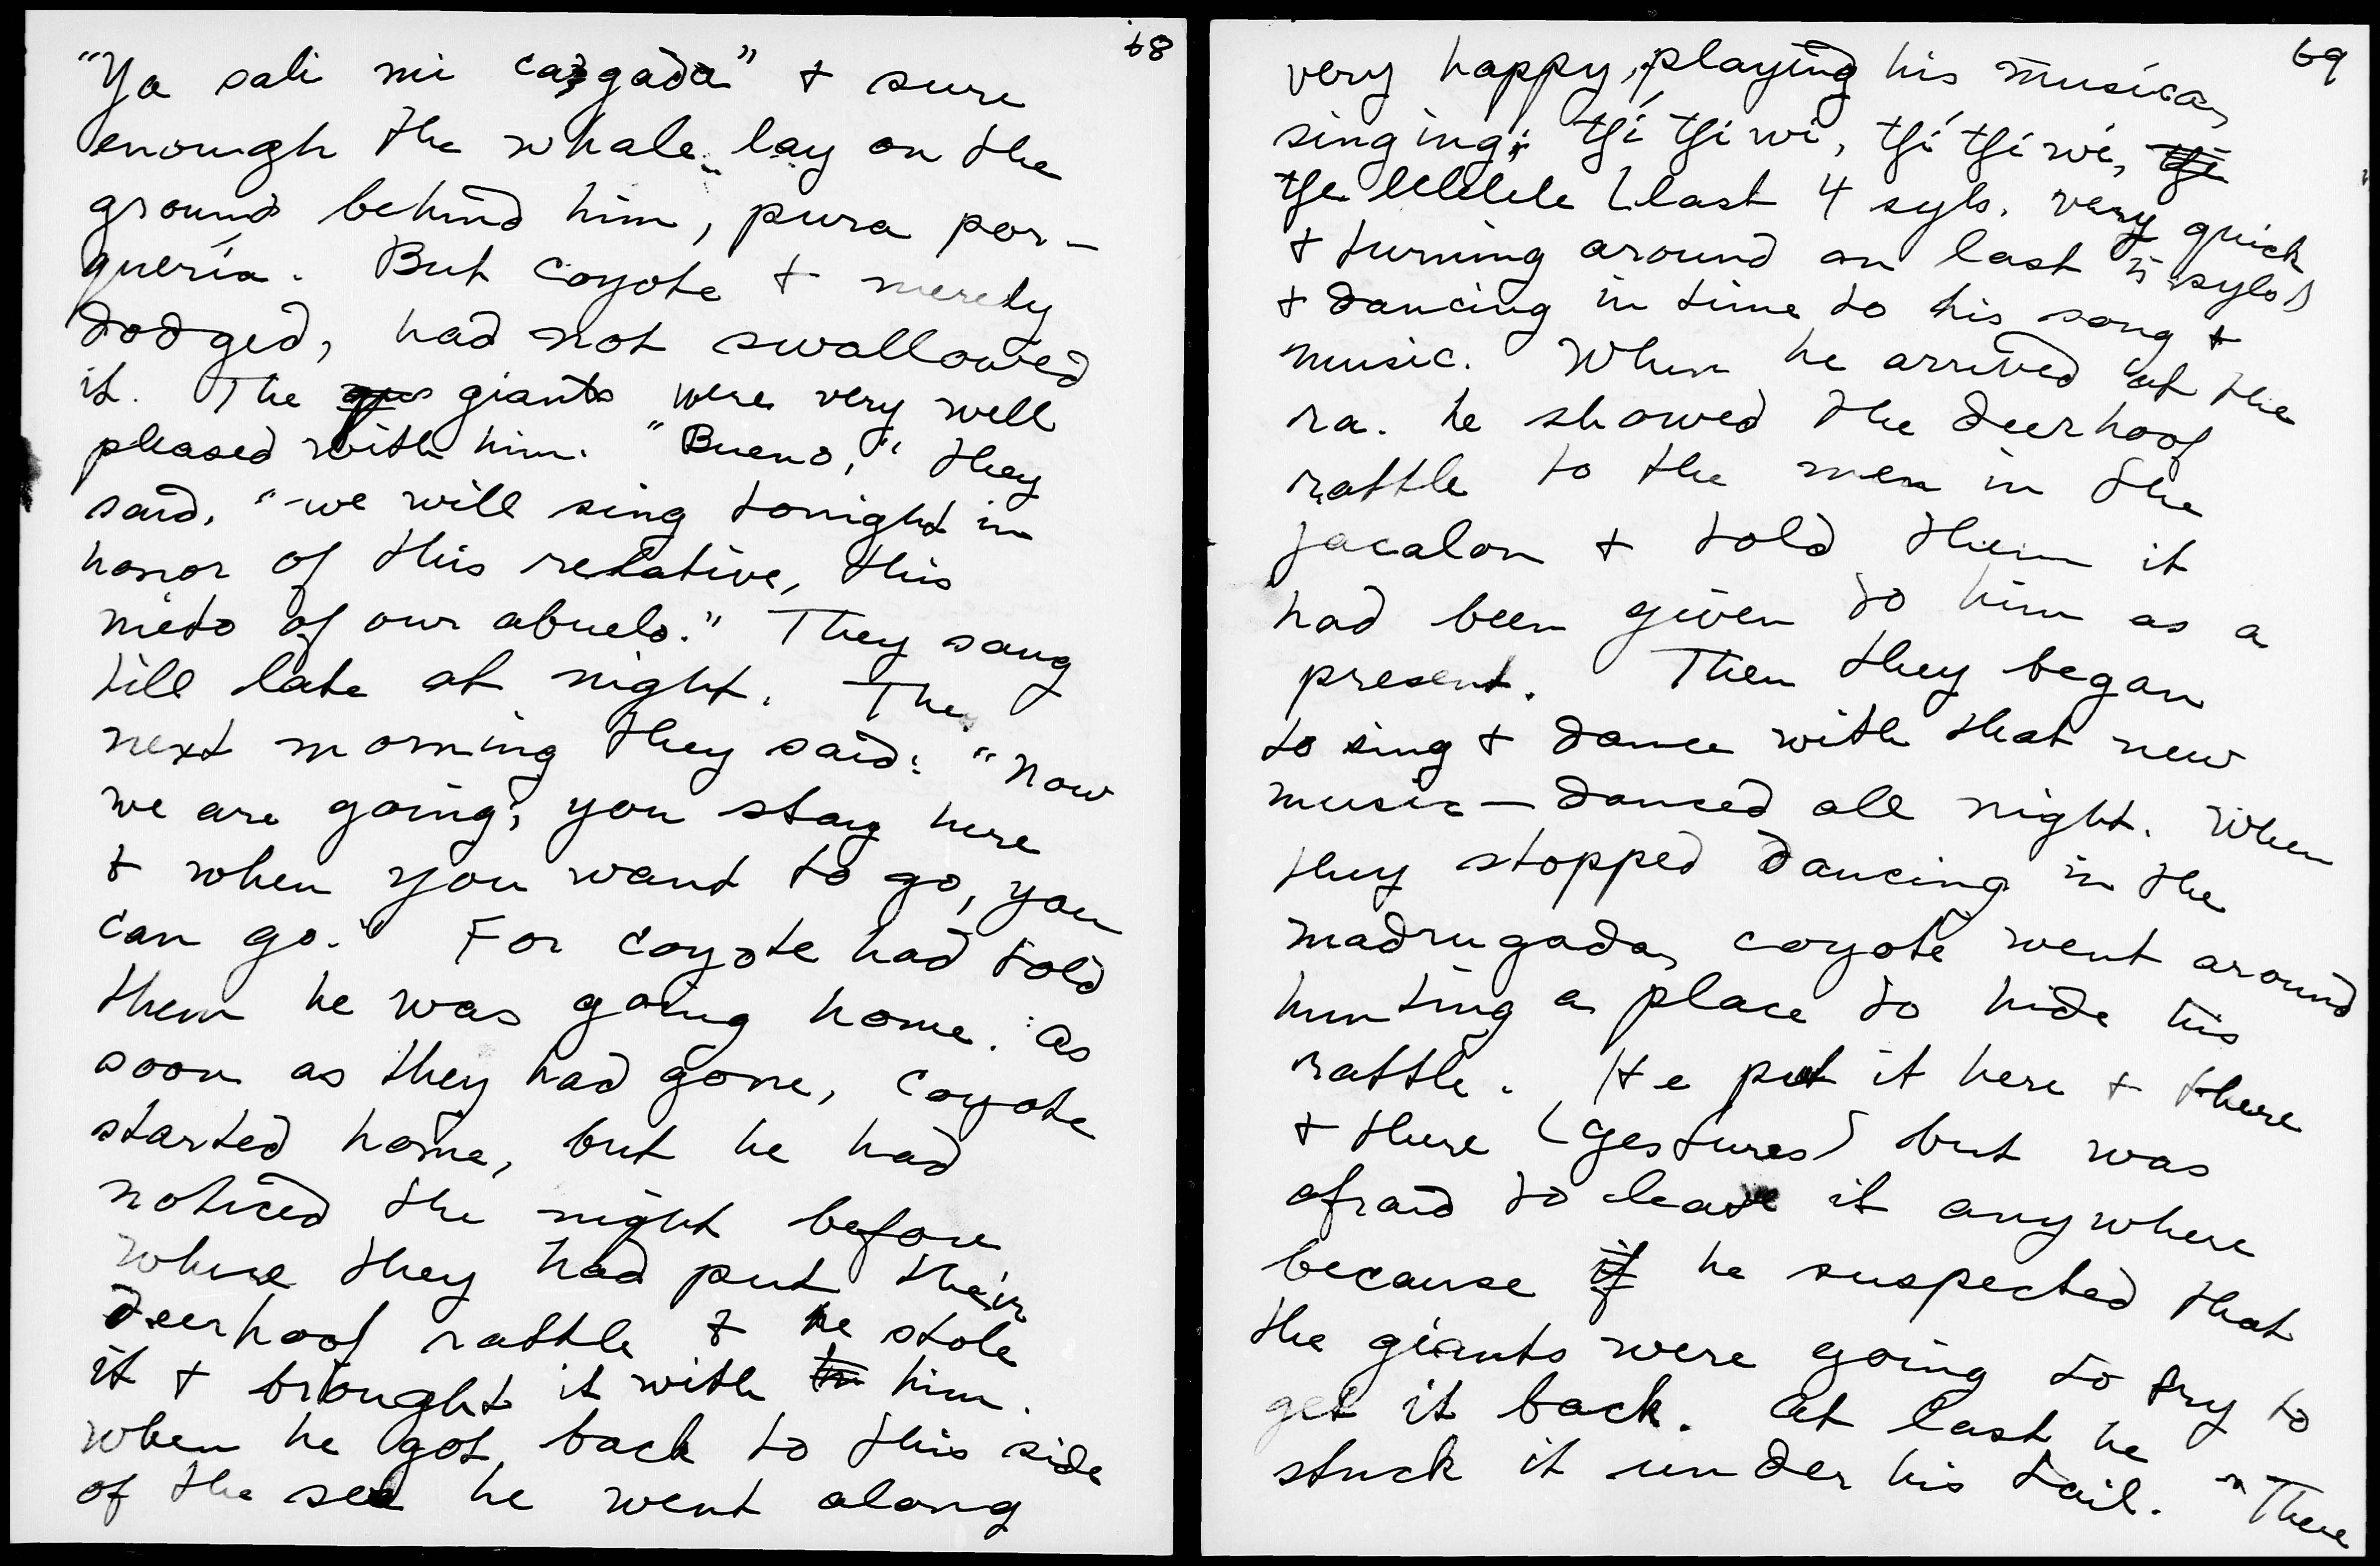 68
"Ya sali mi cargada" + sure
enough the whale lay on the
ground behind him, pura por-
quería. But coyote + merely
dodged, had not swallowed
it. The giants were very well
pleased with him. "Bueno," they
said, "we will sing tonight in
honor of this relative, this
nieto of our abuelo." They sang
till late at night. The
next morning they said: "Now
we are going; you stay here
+ when you want to go, you
can go." For coyote had told
them he was going home. As
soon as they had gone, coyote
started home, but he had
noticed the night before
where they had put their
deerhoof rattle + he stole
it + brought it with him.
When he got back to this side
of the sea he went along
69
very happy, playing his musica,
singing: tʃí tʃi wi, tʃí tʃi wi,
tʃe lelelele (last 4 syls. very quick
+ turning around on last syls)
+ dancing in time to his song +
music. When he arrived at the
ra. he showed the deerhoof
rattle to the men in the
jacalon + told them it
had been given to him as a
present. Then they began
to sing + dance with that new
music — danced all night. When
they stopped dancing in the
madrugada, coyote went around
hunting a place to hide his
rattle. He put it here + there
+ there (gestures) but was
afraid to leave it anywhere
because he suspected that
the giants were going to try to
get it back. At last he
stuck it under his tail. "There